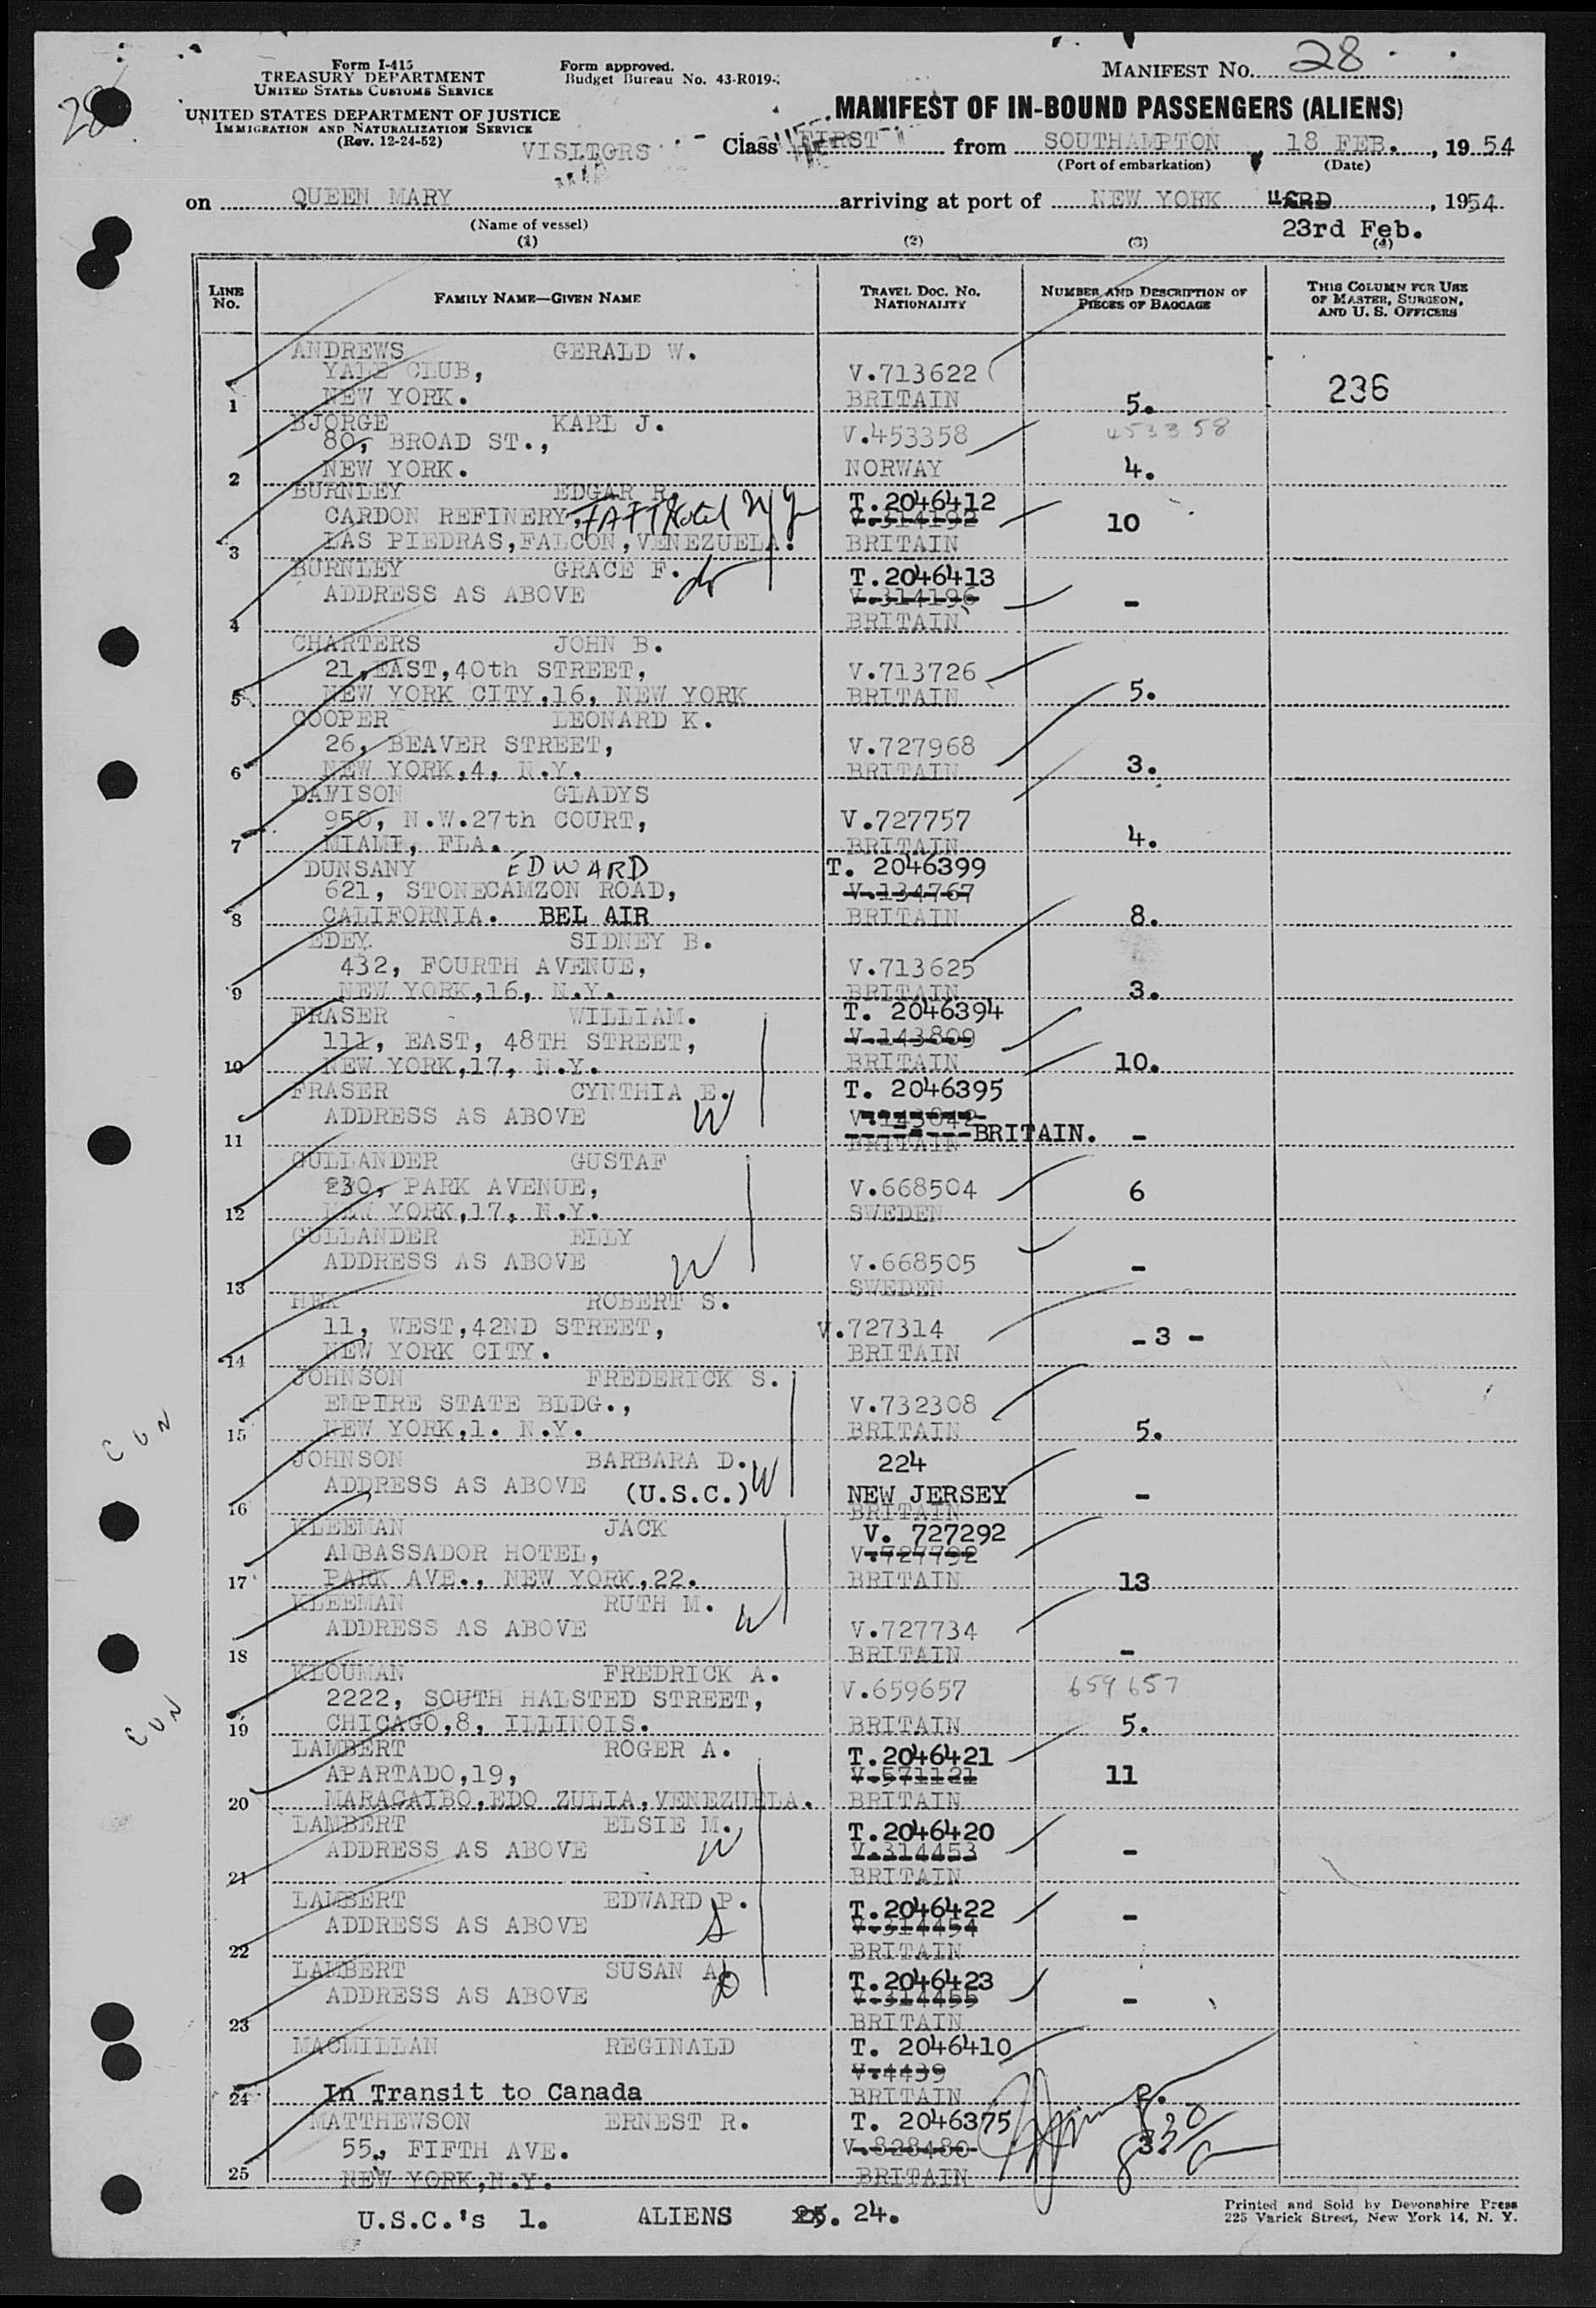 28
Form I-415
TREASURY DEPARTMENT
UNITED STATES CUSTOMS SERVICE
UNITED STATES DEPARTMENT OF JUSTICE
IMMIGRATION AND NATURALIZATION SERVICE
(Rev. 12-24-52)
Form approved.
Budget Bureau No. 43-R019-
MANIFEST No. 28
MANIFEST OF IN-BOUND PASSENGERS (ALIENS)
VISITORS Class FIRST from SOUTHAMPTON, 18 FEB., 1954
(Port of embarkation) (Date)
on QUEEN MARY arriving at port of NEW YORK, 1954
(Name of vessel) 23rd Feb.
(1) (2) (3) (4)
LINE No. FAMILY NAME—GIVEN NAME TRAVEL DOC. NO. NATIONALITY NUMBER AND DESCRIPTION OF PIECES OF BAGGAGE THIS COLUMN FOR USE OF MASTER, SURGEON, AND U. S. OFFICERS
ANDREWS GERALD W.
YALE CLUB, V.713622 236
1 NEW YORK. BRITAIN 5.
BJORGE KARL J.
80, BROAD ST., V.453358 453358
2 NEW YORK. NORWAY 4.
BURNLEY EDGAR R. T.2046412
CARDON REFINERY, TAFT Hotel NY V.314192 10
3 LAS PIEDRAS,FALCON,VENEZUELA. BRITAIN
BURNLEY GRACE F. T.2046413
ADDRESS AS ABOVE V.314196 -
4 BRITAIN
CHARTERS JOHN B.
21,EAST,40th STREET, V.713726
5 NEW YORK CITY,16, NEW YORK BRITAIN 5.
COOPER LEONARD K.
26, BEAVER STREET, V.727968
6 NEW YORK,4, N.Y. BRITAIN 3.
DAWISON GLADYS
950, N.W.27th COURT, V.727757
7 MIAMI, FLA. BRITAIN 4.
DUNSANY EDWARD T. 2046399
621, STONECAMZON ROAD, V.134767
8 CALIFORNIA. BEL AIR BRITAIN 8.
EDEY SIDNEY B.
432, FOURTH AVENUE, V.713625
9 NEW YORK,16, N.Y. BRITAIN 3.
FRASER WILLIAM. T. 2046394
111, EAST, 48TH STREET, V.143809
10 NEW YORK,17, N.Y. BRITAIN 10.
FRASER CYNTHIA E. T. 2046395
ADDRESS AS ABOVE W V.143842
11 BRITAIN BRITAIN. -
GULLANDER GUSTAF
230, PARK AVENUE, V.668504 6
12 NEW YORK,17, N.Y. SWEDEN
GULLANDER ELLY
ADDRESS AS ABOVE W V.668505 -
13 SWEDEN
HEK ROBERT S.
11, WEST,42ND STREET, V.727314 -3 -
14 NEW YORK CITY. BRITAIN
JOHNSON FREDERICK S.
EMPIRE STATE BLDG., V.732308
15 NEW YORK,1. N.Y. BRITAIN 5.
CUN
JOHNSON BARBARA D. W 224
ADDRESS AS ABOVE (U.S.C.) NEW JERSEY -
16 BRITAIN
KLEEMAN JACK V. 727292
AMBASSADOR HOTEL, V.727792
17 PARK AVE., NEW YORK,22. BRITAIN 13
KLEEMAN RUTH M. W
ADDRESS AS ABOVE V.727734
18 BRITAIN -
KLOUMAN FREDRICK A.
2222, SOUTH HALSTED STREET, V.659657 659657
19 CHICAGO,8, ILLINOIS. BRITAIN 5.
CUN
LAMBERT ROGER A. T.2046421
APARTADO,19, V.571121 11
20 MARACAIBO,EDO ZULIA,VENEZUELA. BRITAIN
LAMBERT ELSIE M. T.2046420
ADDRESS AS ABOVE W V.314453 -
21 BRITAIN
LAMBERT EDWARD P. T.2046422
ADDRESS AS ABOVE S V.314454 -
22 BRITAIN
LAMBERT SUSAN A. D T.2046423
ADDRESS AS ABOVE V.314455 -
23 BRITAIN
MACMILLAN REGINALD T. 2046410
V.4439
24 In Transit to Canada BRITAIN 2.
MATTHEWSON ERNEST R. T. 2046375
55, FIFTH AVE. V.828480 3.
25 NEW YORK,N.Y. BRITAIN
U.S.C.'s 1. ALIENS 25. 24.
Printed and Sold by Devonshire Press
225 Varick Street, New York 14, N. Y.